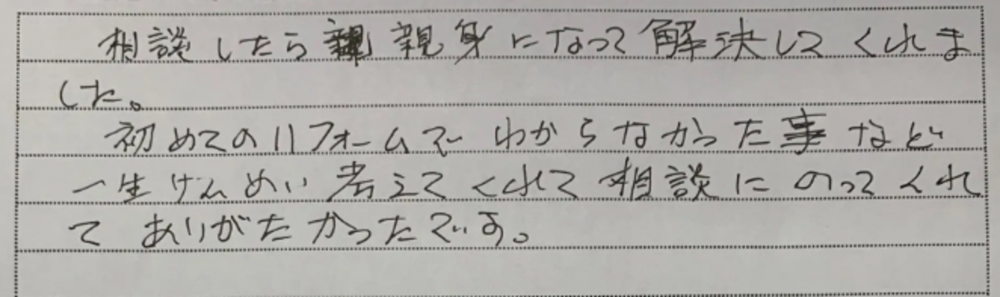 相談したら親身になって解決してくれま
した。
初めてのリフォームでわからなかった事など
一生けんめい考えてくれて相談にのってくれ
てありがたかったです。